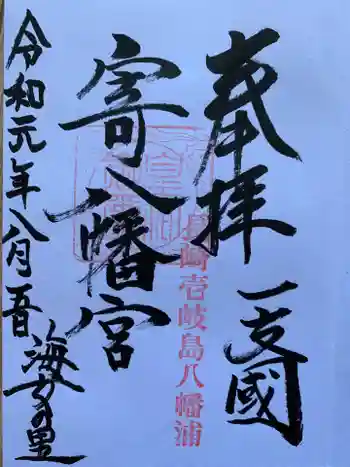 奉拝 一支國
長崎壱岐島八幡浦
寄八幡宮
令和元年八月五日 海女の里